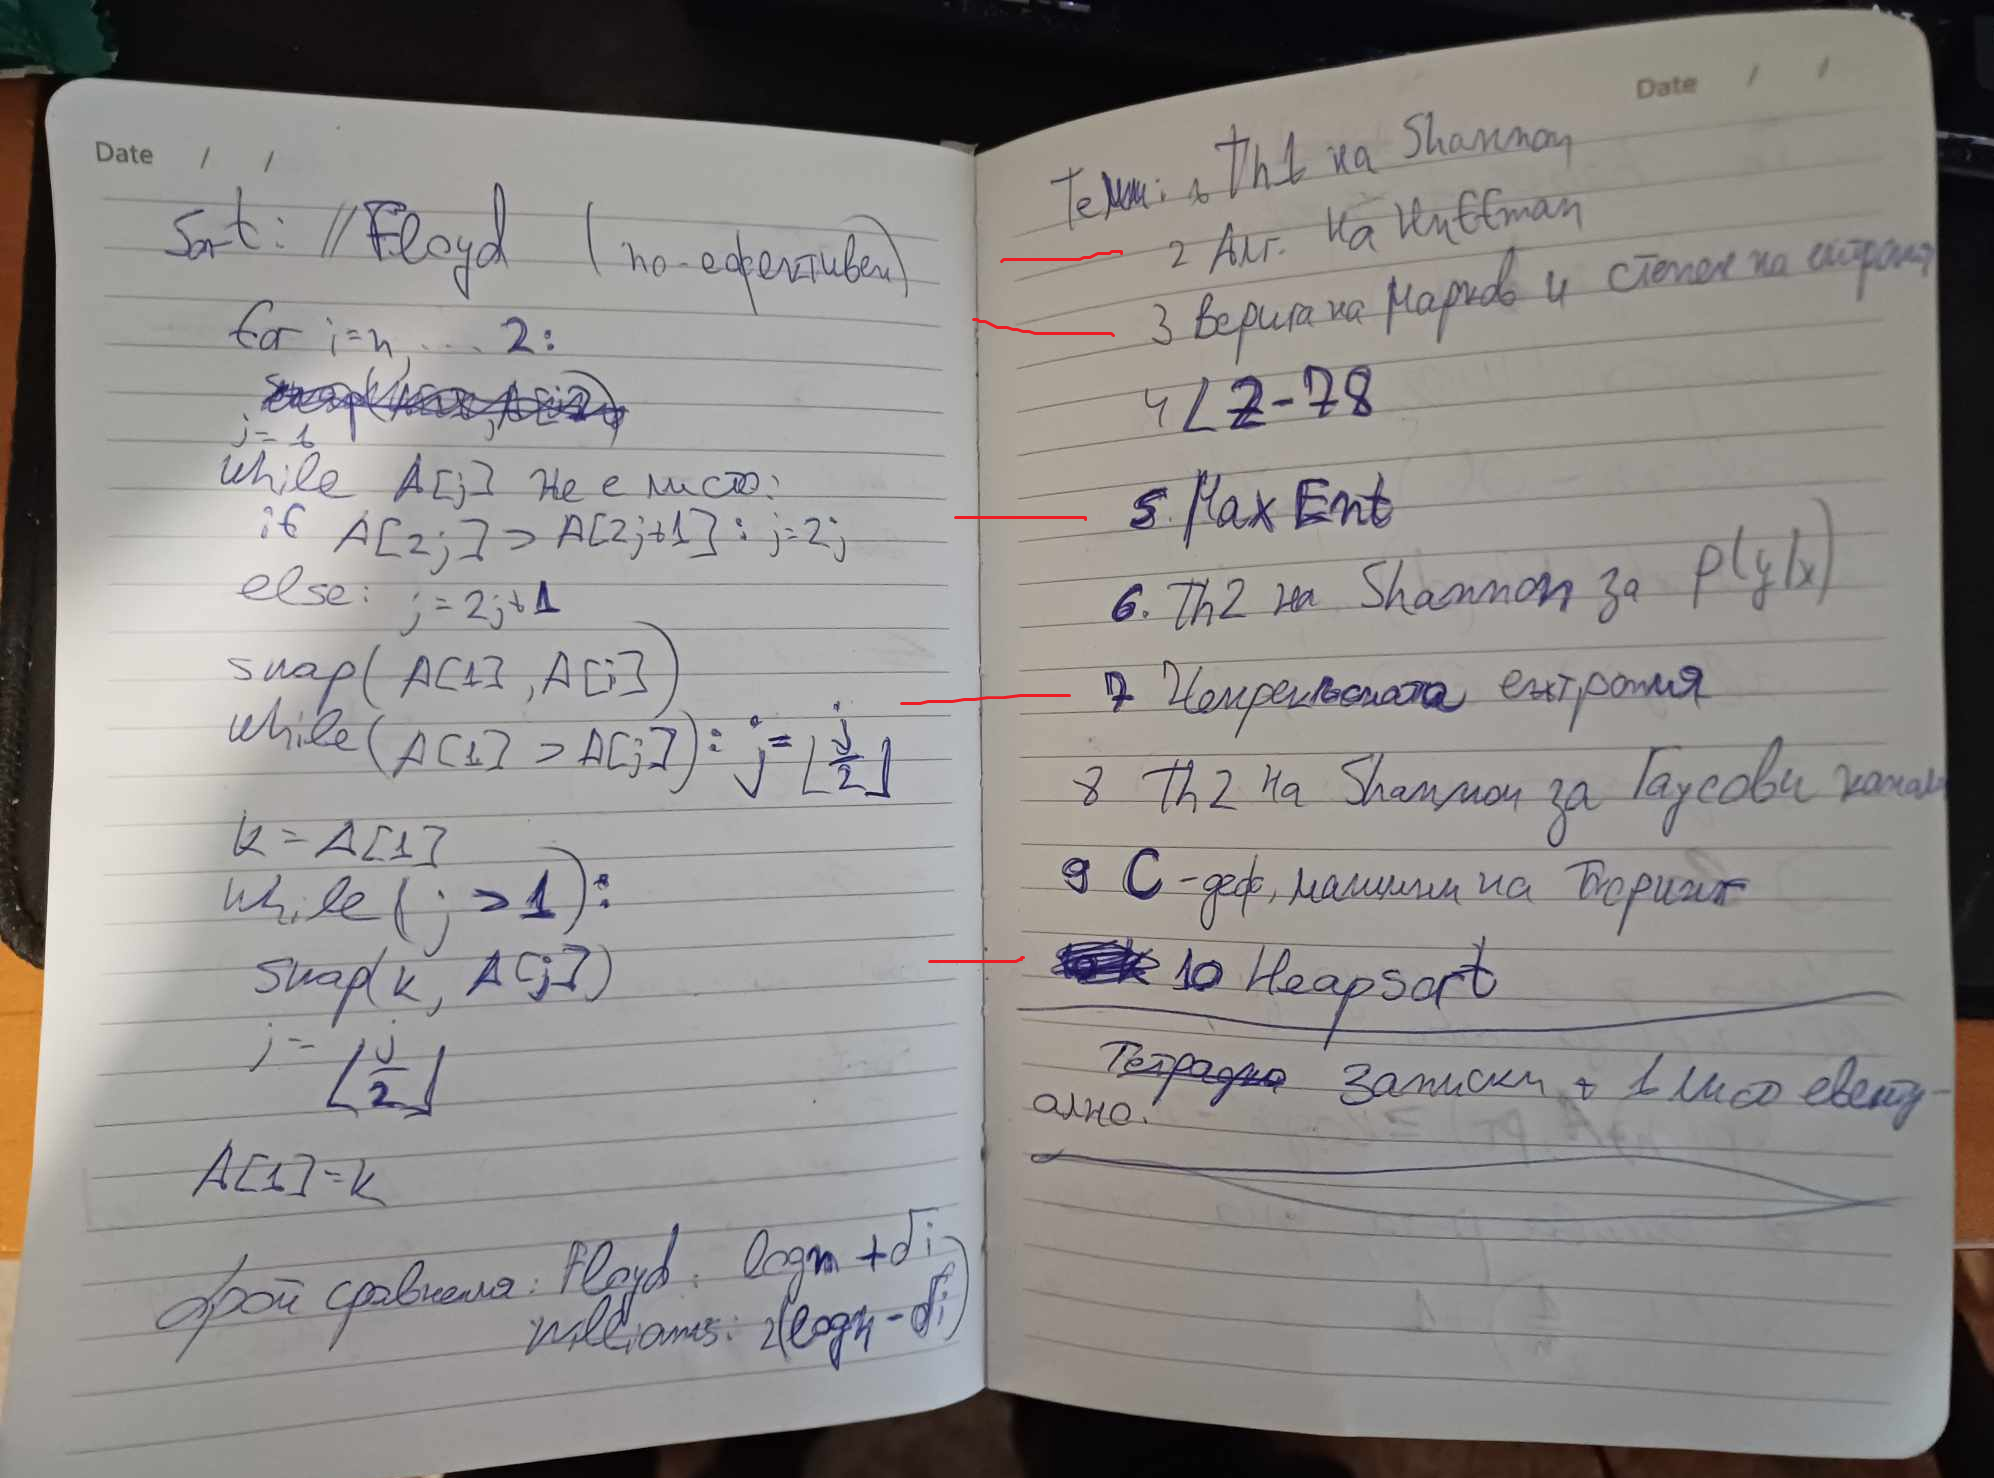 Date / /
Sort: // Floyd (по-ефективен)
for i=n, ... 2:
j=1
while A[j] не е листо:
if A[2j] > A[2j+1]: j=2j
else: j=2j+1
swap(A[1], A[j])
while(A[1] > A[j]): j=⌊j/2⌋
k = A[1]
while(j>1):
swap(k, A[j])
j = ⌊j/2⌋
A[1]=k
брой сравнения: Floyd: logn + di
Williams: 2(logn - di)
Date / /
Теми: 1 Th1 на Shannon
2 Алг. на Huffman
3 Верига на Марков и степен на
4 LZ-78
5. Max Ent
6. Th2 на Shannon за p(y|x)
7 Непрекъсната ентропия
8 Th2 на Shannon за Гаусови канали
9 C-деф, машини на Тюринг
10 Heapsort
Тетрадка записки + 1 лист евенту-
ално.